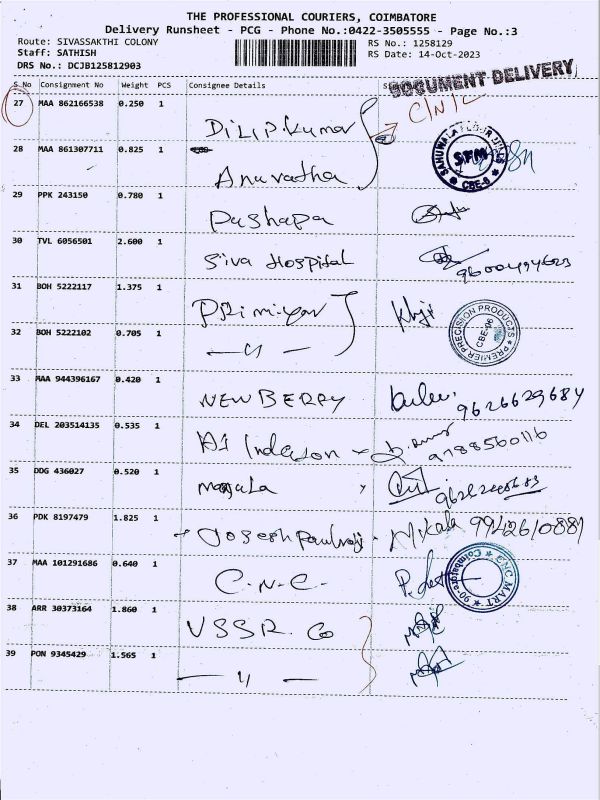 THE PROFESSIONAL COURIERS, COIMBATORE
Delivery Runsheet - PCG - Phone No.:0422-3505555 - Page No.:3
Route: SIVASSAKTHI COLONY RS No.: 1258129
Staff: SATHISH RS Date: 14-Oct-2023
DRS No.: DCJB125812903
DOCUMENT DELIVERY
S.No Consignment No Weight PCS Consignee Details
27 MAA 862166538 0.250 1 Dilip.kumar
28 MAA 861307711 0.825 1 Anuratha
SFM CBE-6
29 PPK 243150 0.780 1 Pushapa
30 TVL 6056501 2.600 1 Siva Hospital
31 BOH 5222117 1.375 1
PREMIER PRECISION PRODUCTS CBE-06
32 BOH 5222102 0.705 1 — 〃 —
33 MAA 944396167 0.420 1 NEW BERRY 9626629684
34 DEL 203514135 0.535 1 9788560116
35 DDG 436027 0.520 1
36 PDK 8197479 1.825 1 9942610881
37 MAA 101291686 0.640 1 C.N.C.
CNC MART Coimbatore-06
38 ARR 30373164 1.860 1 VSSR. Co
39 PON 9345429 1.565 1 — 〃 —